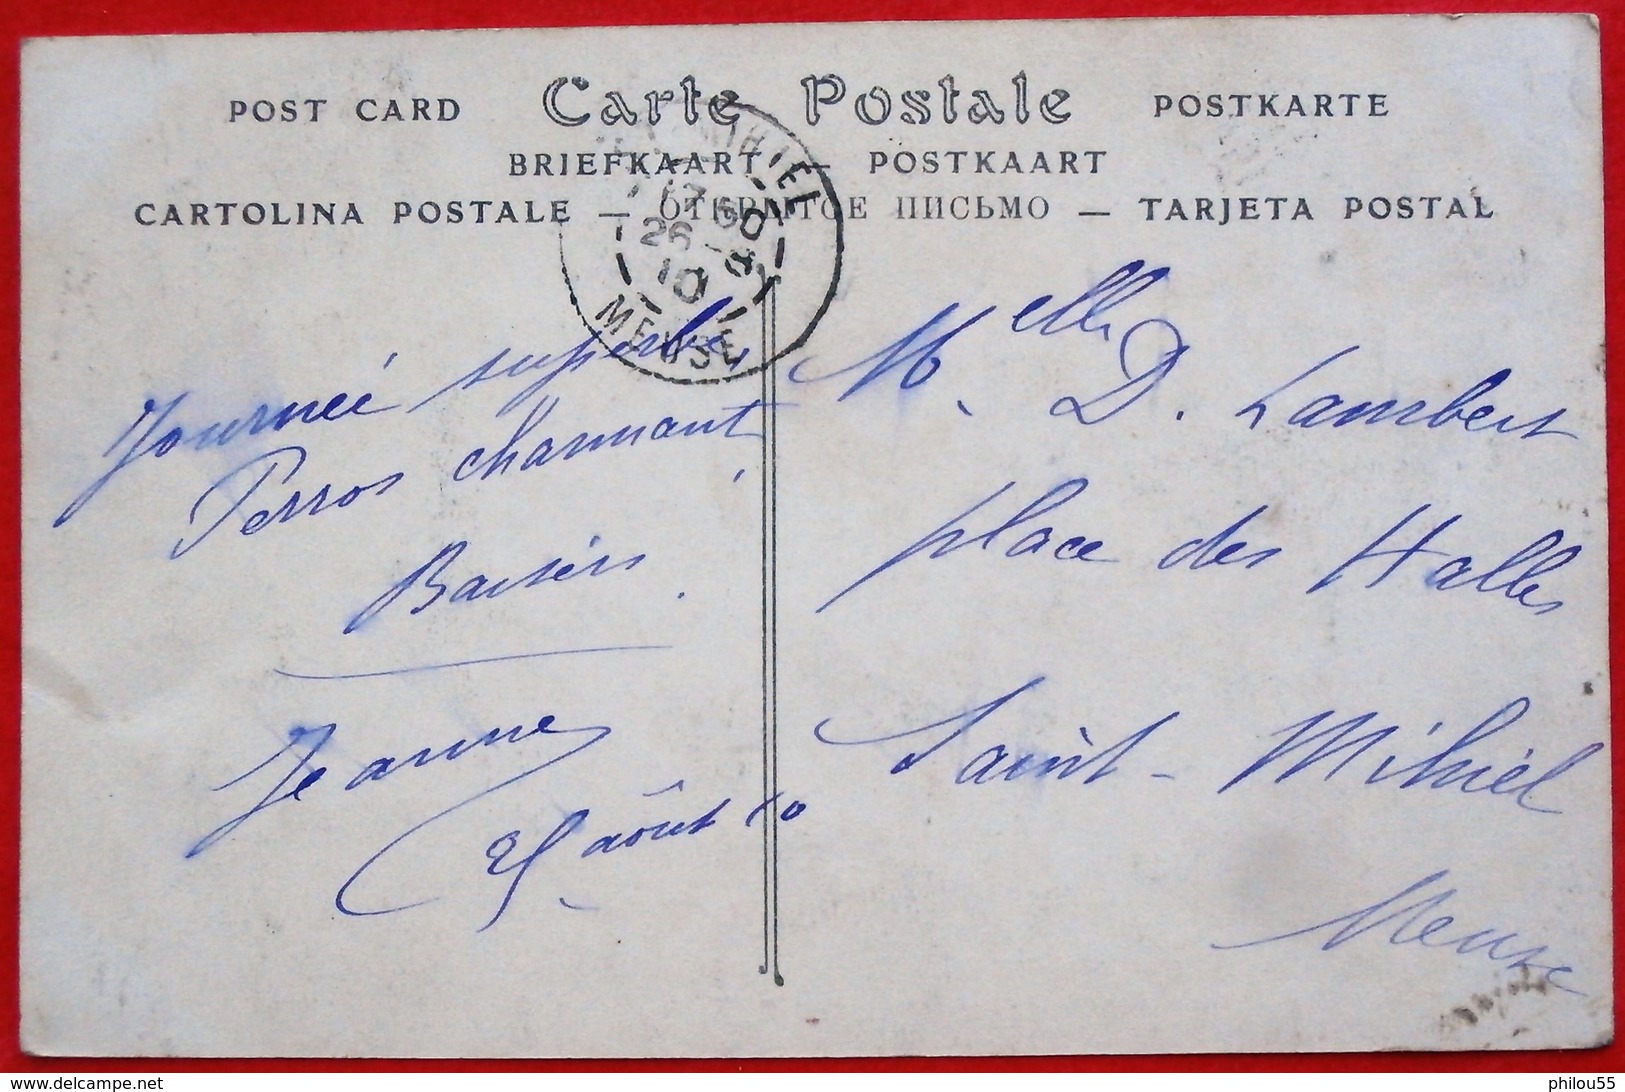 POST CARD Carte Postale POSTKARTE
BRIEFKAART — POSTKAART
CARTOLINA POSTALE — ОТКРЫТОЕ ПИСЬМО — TARJETA POSTAL
MIHIEL
26 - 8
10
MEUSE
Journée superbe,
Perros charmant
Baisers.
Jeanne
25 août 10
Melle D. Lambert
place des Halles
Saint-Mihiel
Meuse
philou55